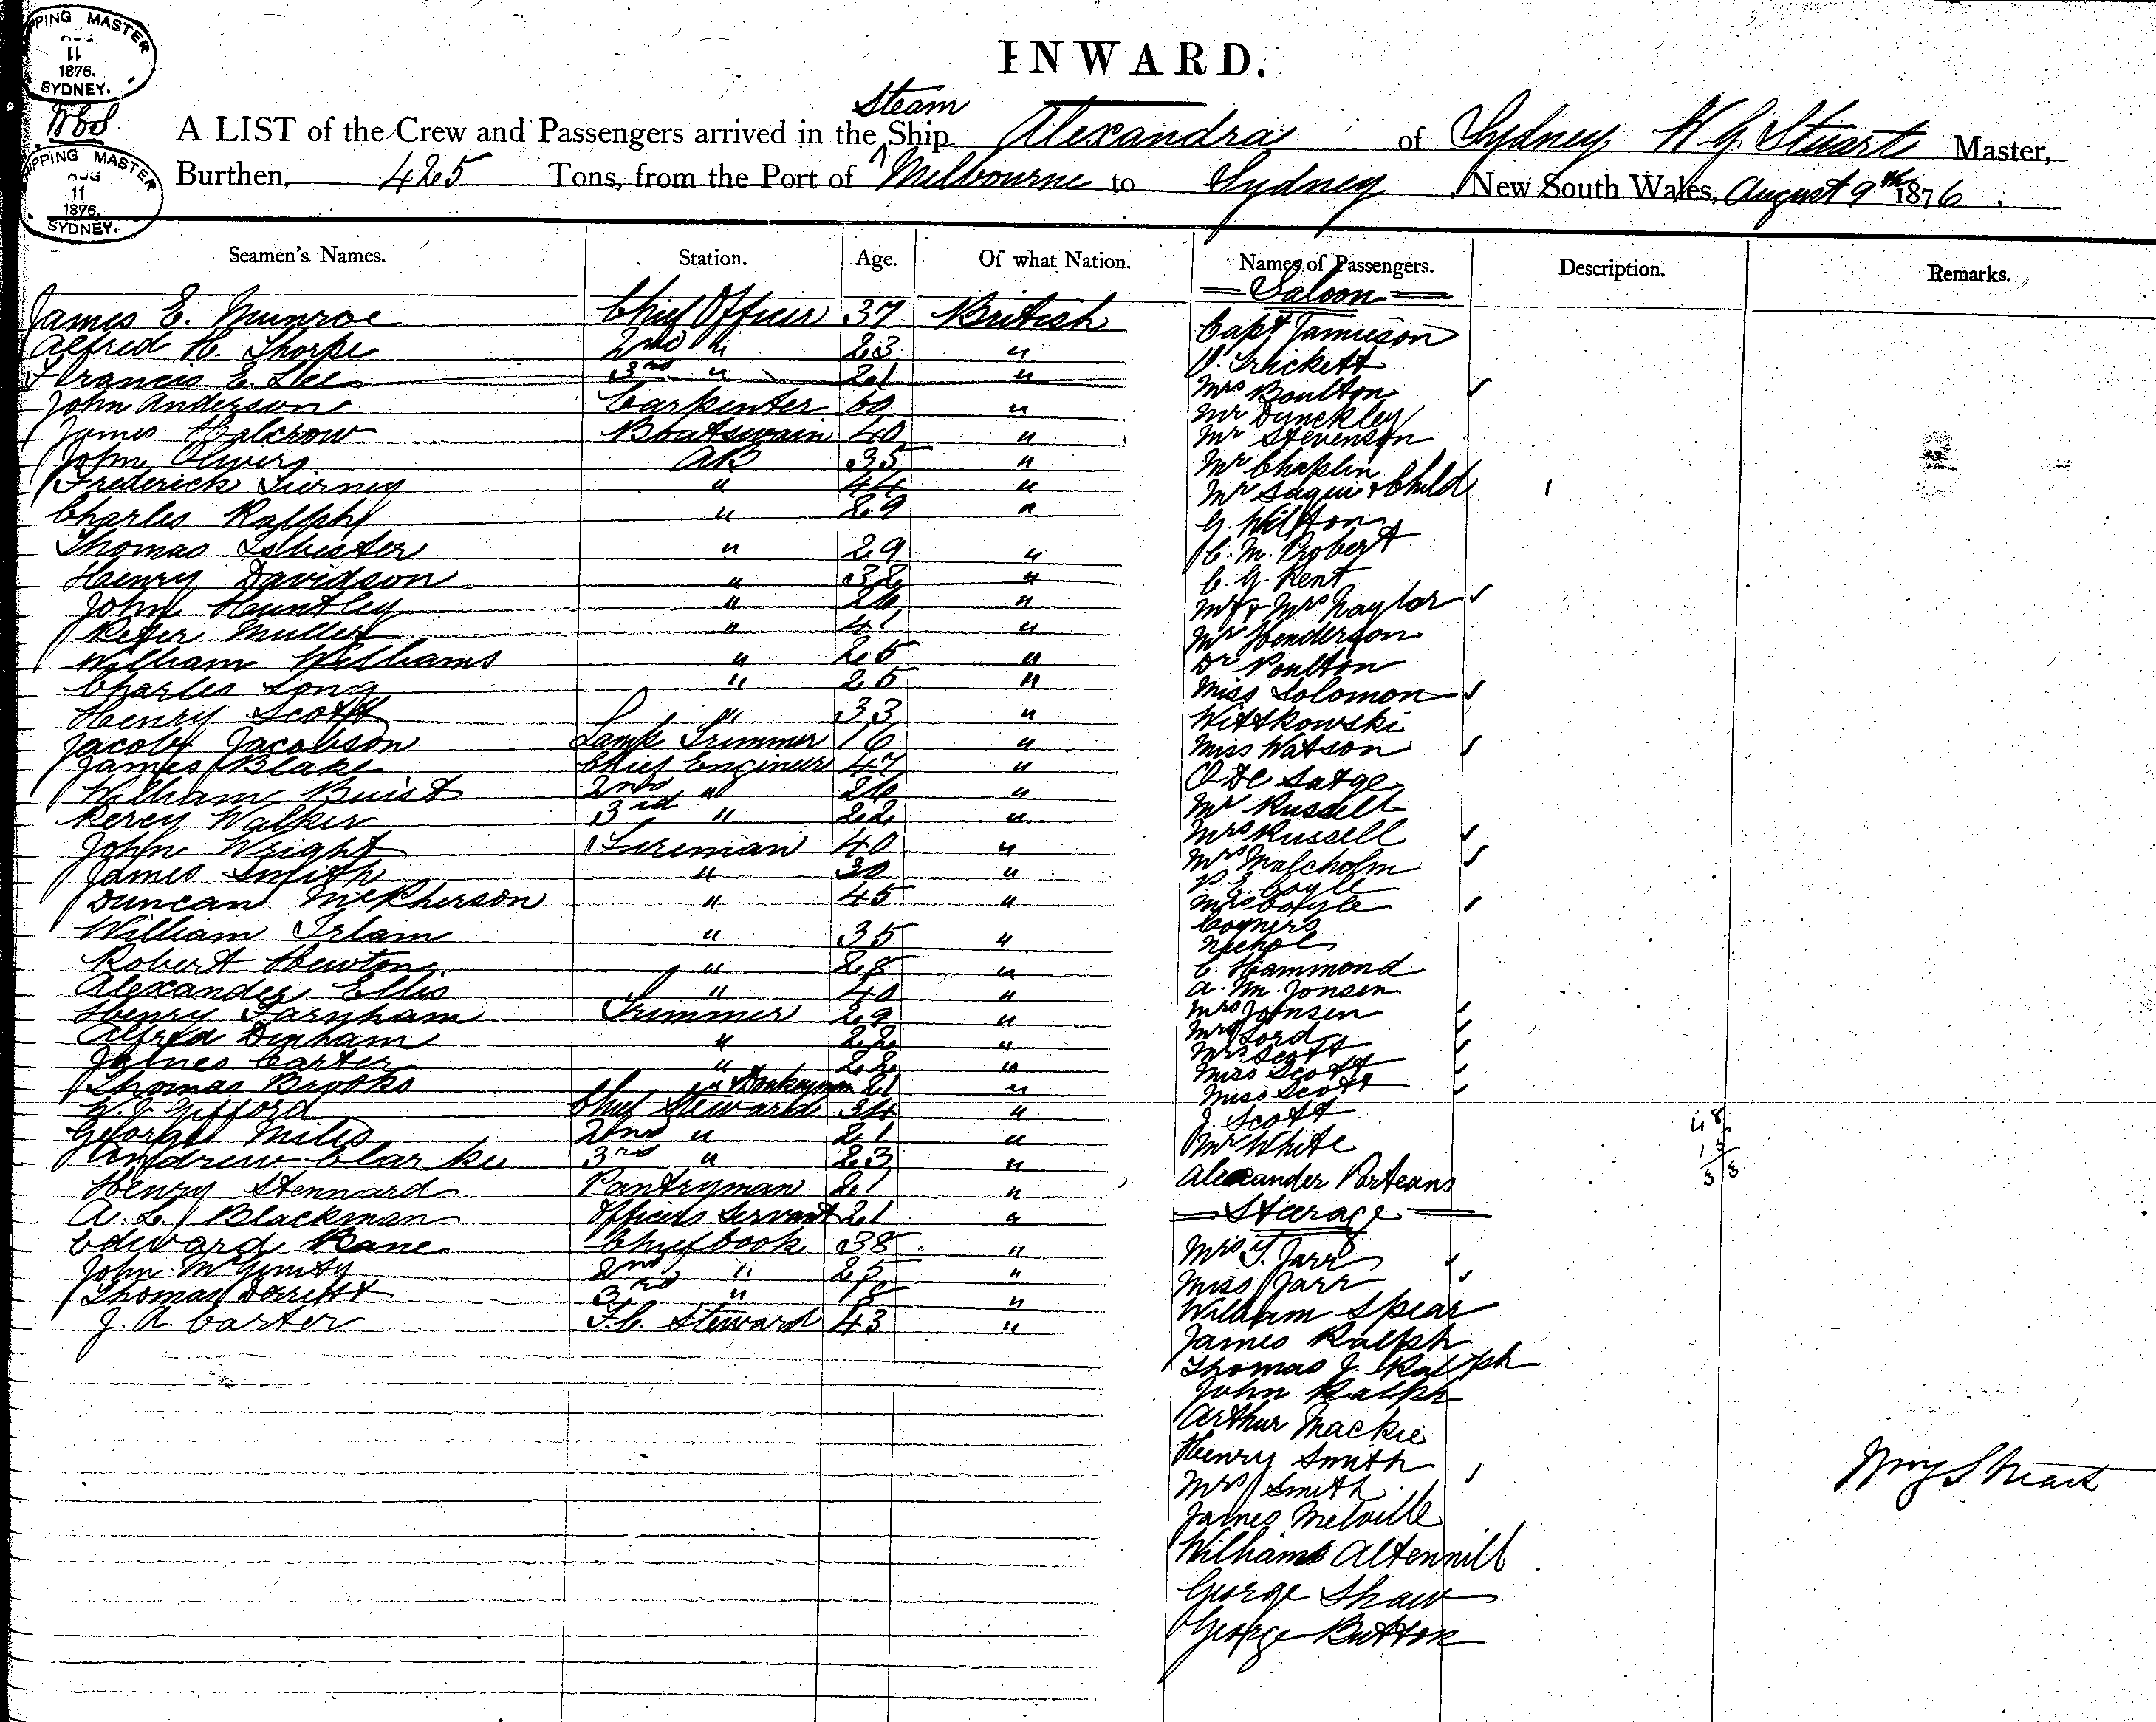 SHIPPING MASTER
AUG
11
1876.
SYDNEY.
SHIPPING MASTER
AUG
11
1876.
SYDNEY.
INWARD.
Steam
A LIST of the Crew and Passengers arrived in the Ship Alexandra of Sydney W. G. Stuart Master,
Burthen, 425 Tons, from the Port of Melbourne to Sydney New South Wales, August 9th 1876.
Seamen's Names. Station. Age. Of what Nation. Names of Passengers. Description. Remarks.
James E. Munroe Chief Officer 37 British
Alfred H. Thorpe 2nd " 23 "
Francis E. Lee 3rd " 21 "
John Anderson Carpenter 60 "
James Halcrow Boatswain 40 "
John Olivers AB 35 "
Frederick Tierney " 44 "
Charles Ralph " 29 "
Thomas Isbister " 29 "
Henry Davidson " 32 "
John Huntley " 26 "
Peter Muller " 41 "
William Williams " 25 "
Charles Long " 25 "
Henry Scott " 33 "
Jacob Jacobson Lamp Trimmer 16 "
James Blake Chief Engineer 47 "
William Buist 2nd " 26 "
Percy Walker 3rd " 22 "
John Wright Fireman 40 "
James Smith " 30 "
Duncan McPherson " 45 "
William Irlam " 35 "
Robert Hewton " 28 "
Alexander Ellis " 40 "
Henry Farnham Trimmer 29 "
Alfred Dinham " 22 "
James Carter " 22 "
Thomas Brooks " & Donkeyman 21 "
W. J. Gifford Chief Steward 34 "
George Miles 2nd " 21 "
Andrew Clarke 3rd " 23 "
Henry Stennard Pantryman 21 "
A. L. Blackman Officers Servant 21 "
Edward Kane Chief Cook 38 "
John McGinity 2nd " 25 "
Thomas 3rd " 18 "
J. A. Carter F.C. Steward 43 "
Saloon
Capt Jamieson
Trickett
Mrs Boulton
Mr Dunckley
Mr Stevenson
Mr Chaplin
Mr & Child
G. Wilton
C. M. Probert
C. G. Kent
Mr & Mrs Naylor
Mr Henderson
Dr Poulton
Miss Solomon
Wittkowski
Miss Watson
O De Satge
Mr Russell
Mrs Russell
Mrs Malcholm
P. E. Coyle
Mrs Coyle
Conyers
Nichol
C. Hammond
A. M. Jonsen
Mrs Jonsen
Mrs Lord
Mrs Scott
Miss Scott
Miss Scott
J. Scott
Mr White
Alexander Porteans
Steerage
Mrs T. Jarr
Miss Jarr
William Spear
James Ralph
Thomas J. Ralph
John Ralph
Arthur Mackie
Henry Smith
Mrs Smith
James Melville
William Altennill
George Shaw
George Button
48
15
Wm G Stuart